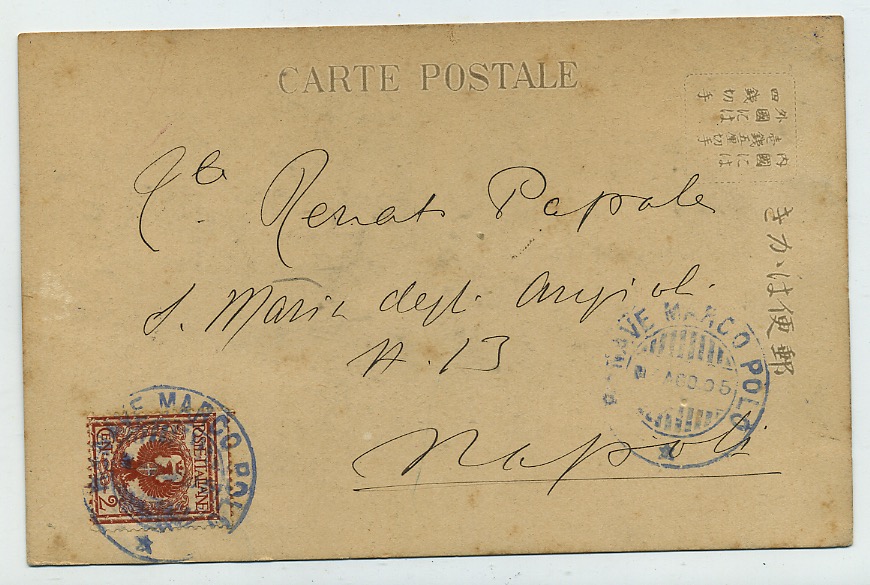 CARTE POSTALE
内國には
壱錢五厘切手
外國には
四錢切手
郵便はかき
Renato Papale
S. Maria degli Angioli
N. 13
Napoli
R. NAVE MARCO POLO
AGO 05
NAVE MARCO POLO
POSTE ITALIANE
CENT. 2